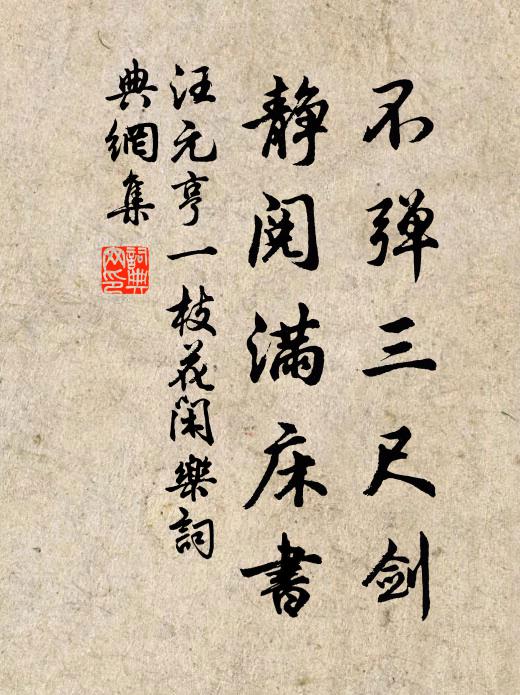 不弹三尺剑
静阅满床書
汪元亨一枝花闲樂詞
典網集
詞典
网印